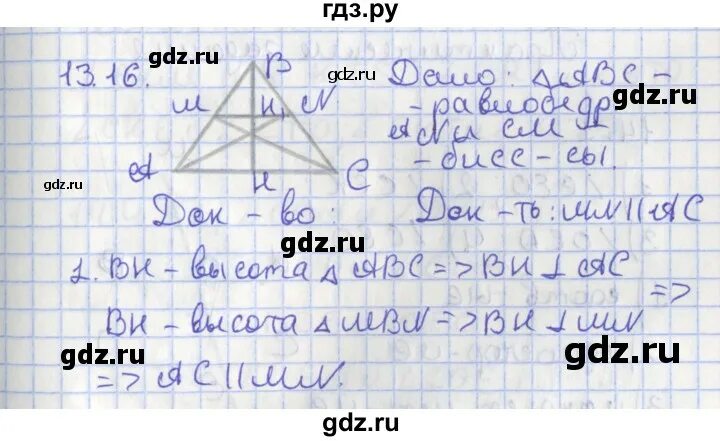 гдз.ру
13.16.
B
M H₁ N
A H C
Дано: △ABC –
– равнобедр
AN и CM –
– бисс-сы.
Док-во: Док-ть: MN || AC
1. BH – высота △ ABC => BH ⊥ AC
=>
BH – высота △ MBN => BH ⊥ MN
=> AC || MN.
gdz.ru
gdz.ru
gdz.ru
gdz.ru
gdz.ru
gdz.ru
gdz.ru
gdz.ru
gdz.ru
gdz.ru